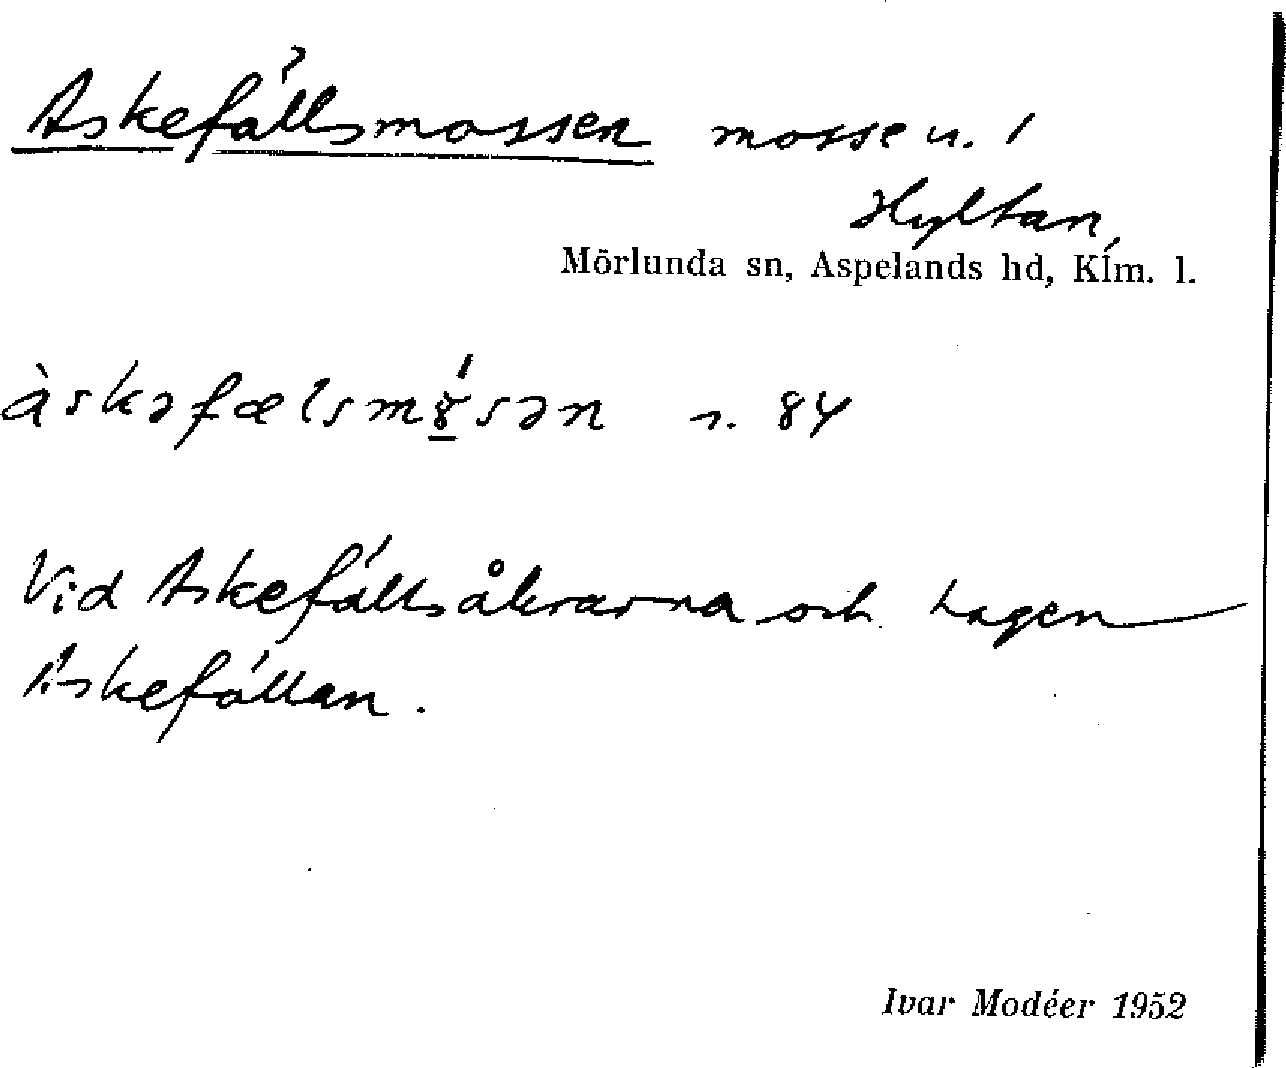 Askefällsmossen mosse u. 1
Hyltan,
Mörlunda sn, Aspelands hd, Klm. l.
àskəfælsmɣ́sən s. 84
Vid Askefällsåkrarna och hagen
Askefällan.
Ivar Modéer 1952